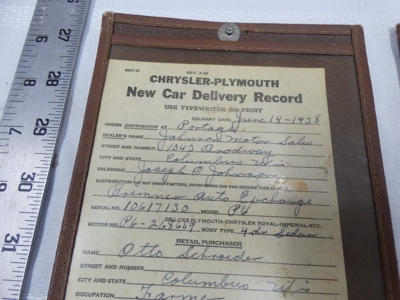 REV. 3-37
CHRYSLER-PLYMOUTH
New Car Delivery Record
USE TYPEWRITER OR PRINT
DELIVERY DATE June 14-1938
UNDER DISTRIBUTOR AT Portage
DEALER'S NAME Johnson Motor Sales
STREET AND NUMBER 1043 Broadway
CITY AND STATE Columbus Wis
SALESMAN Joseph O Johnson
DISTRIBUTOR
Bremner Auto Exchange
SERIAL NO. 10617130 MODEL P6
DE LUXE PLYMOUTH-CHRYSLER ROYAL-IMPERIAL-ETC.
MOTOR NO. P6-268659 BODY TYPE 4 dr Sedan
RETAIL PURCHASER
NAME Otto Schroeder
STREET AND NUMBER
CITY AND STATE Columbus Wis
OCCUPATION Farmer
30
31